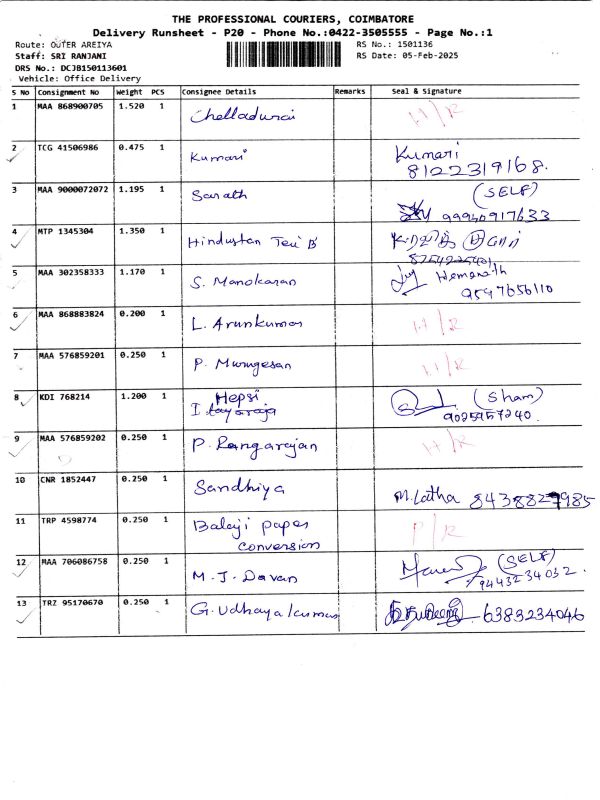 THE PROFESSIONAL COURIERS, COIMBATORE
Delivery Runsheet - P20 - Phone No.:0422-3505555 - Page No.:1
Route: OUTER AREIYA RS No.: 1501136
Staff: SRI RANJANI RS Date: 05-Feb-2025
DRS No.: DCJB150113601
Vehicle: Office Delivery
S No Consignment No Weight PCS Consignee Details Remarks Seal & Signature
1 MAA 868900705 1.520 1 Chelladurai H/R
2 TCG 41506986 0.475 1 Kumari Kumari
8122319168.
3 MAA 9000072072 1.195 1 Sarath (SELF)
4 MTP 1345304 1.350 1 Hindustan
5 MAA 302358333 1.170 1 S. Manokaran
6 MAA 868883824 0.200 1 L. Arunkumar H/R
7 MAA 576859201 0.250 1 P. Murugesan H/R
8 KDI 768214 1.200 1 Hepsi (Sham)
I tayaraja 9025957240.
9 MAA 576859202 0.250 1 P. Rangarajan H/R
10 CNR 1852447 0.250 1 Sandhiya M. Latha
11 TRP 4598774 0.250 1 Balaji paper P/R
conversion
12 MAA 706086758 0.250 1 M. J. Davan (SELF)
9443234032.
13 TRZ 95170670 0.250 1 G. Udhayakumar 6383234046